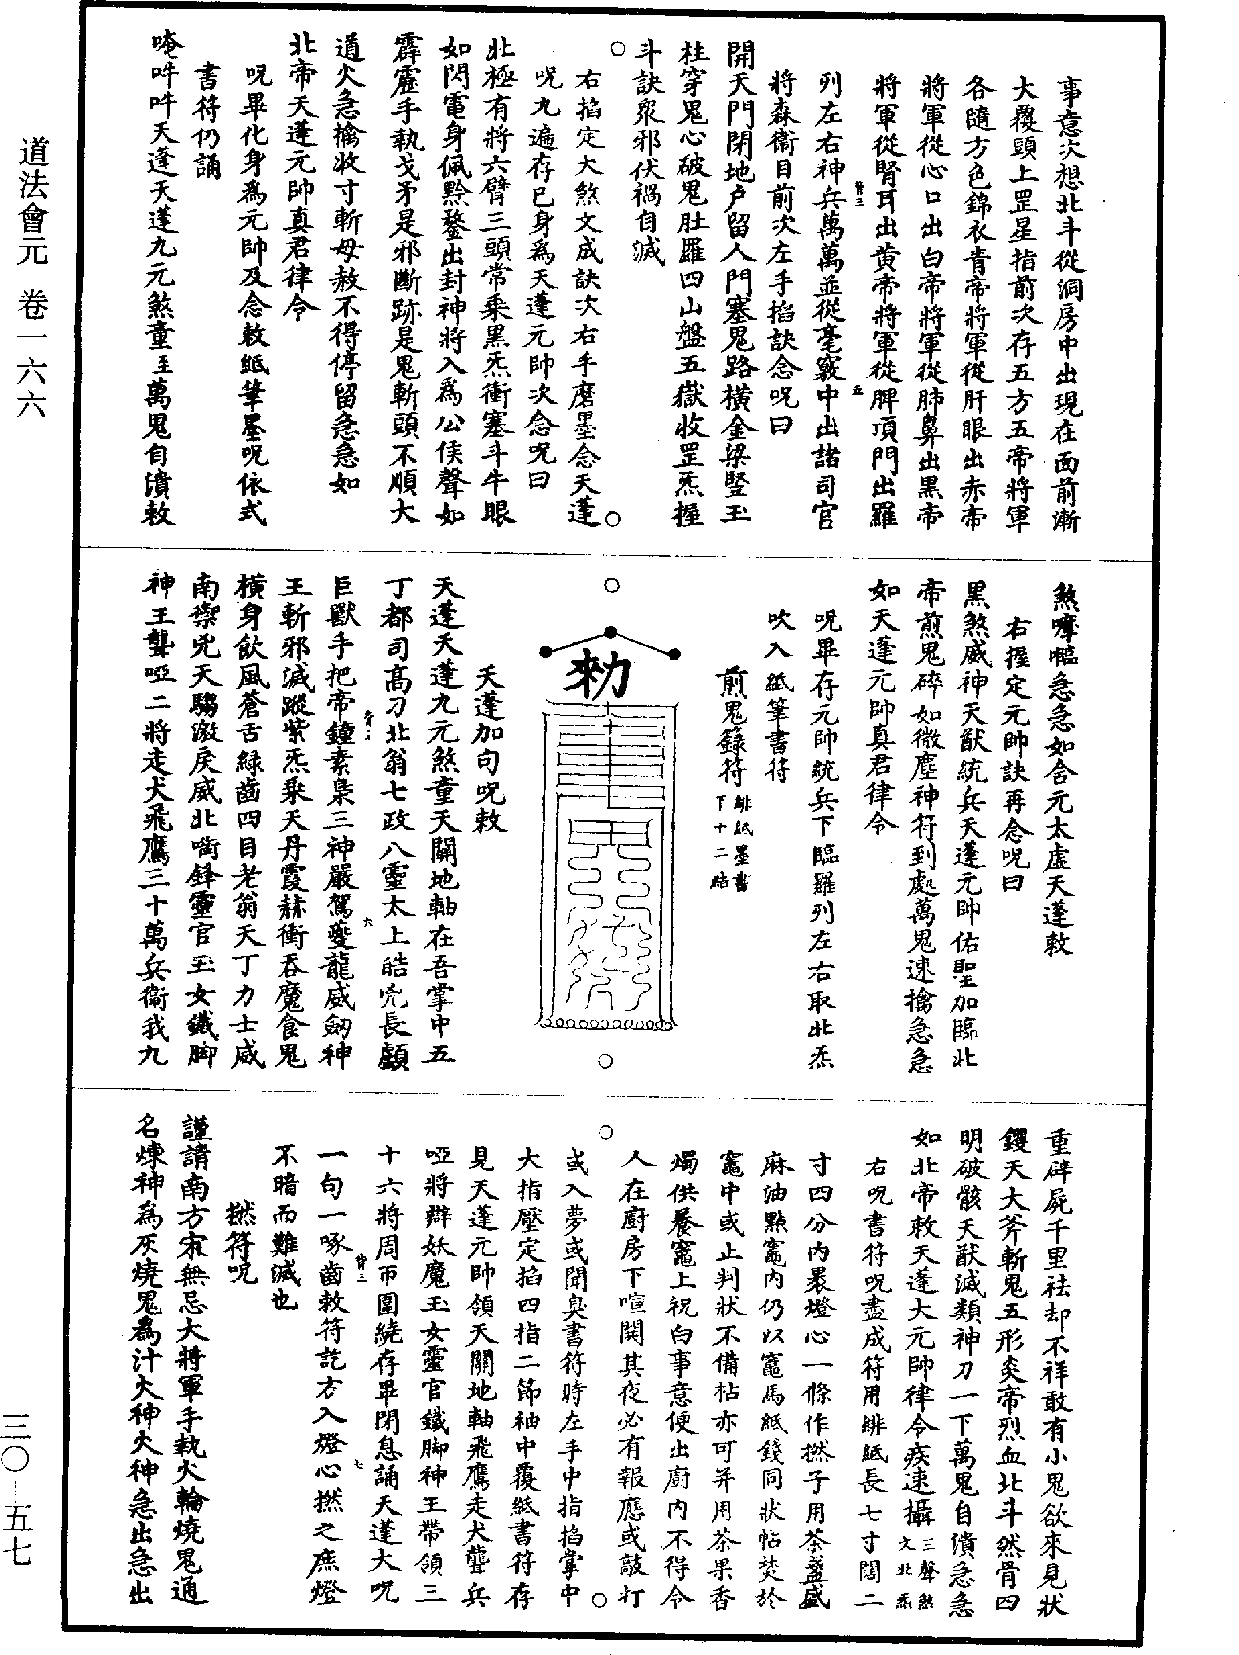 道法會元　卷一六六
事意次想北斗從洞房中出現在面前漸
大覆頭上罡星指前次存五方五帝將軍
各隨方色錦衣青帝將軍從肝眼出赤帝
將軍從心口出白帝將軍從肺鼻出黑帝
將軍從腎耳出黃帝將軍從脾頂門出羅
列左右神兵萬萬並從毫竅中出諸司官
將森衛目前次左手掐訣念呪曰
開天門閉地户留人門塞鬼路橫金梁竪玉
柱穿鬼心破鬼肚羅四山盤五嶽收罡炁握
斗訣衆邪伏禍自滅
右掐定大煞文成訣次右手磨墨念天蓬
呪九遍存已身為天蓬元帥次念呪曰
北極有將六臂三頭常乘黑炁衝塞斗牛眼
如閃電身佩黔鍪出封神將入為公侯聲如
霹靂手執戈矛是邪斷跡是鬼斬頭不順大
道火急擒收寸斬毋赦不得停留急急如
北帝天蓬元帥真君律令
呪畢化身為元帥及念敕紙筆墨呪依式
書符仍誦
唵吽吽天蓬天蓬九元煞童至萬鬼自潰敕
煞嚤㡡急急如含元太虛天蓬敕
右握定元帥訣再念呪曰
黑煞威神天猷統兵天蓬元帥佑聖加臨北
帝煎鬼碎如微塵神符到處萬鬼速擒急急
如天蓬元帥真君律令
呪畢存元帥統兵下臨羅列左右取北炁
吹入紙筆書符
煎鬼籙符緋紙墨書下十二結
敕
天蓬加句呪敕
天蓬天蓬九元煞童天關地軸在吾掌中五
丁都司高刁北翁七政八靈太上皓兇長顱
巨獸手把帝鐘素梟三神嚴駕夔龍威劒神
王斬邪滅蹤紫炁乘天丹霞赫衝吞魔食鬼
橫身飲風蒼舌綠齒四目老翁天丁力士威
南禦兇天騶激戾威北啣鋒靈官玉女鐵脚
神王聾啞二將走犬飛鷹三十萬兵衛我九
重辟屍千里袪却不祥敢有小鬼欲來見狀
钁天大斧斬鬼五形炎帝烈血北斗然骨四
明破骸天猷滅類神刀一下萬鬼自潰急急
如北帝敕天蓬大元帥律令疾速攝三聲煞文北炁
右呪書符呪盡成符用緋紙長七寸闊二
寸四分内褁燈心一條作撚子用茶盞盛
麻油點竈内仍以竈馬紙錢同狀帖焚於
竈中或止判狀不備帖亦可并用茶果香
燭供養竈上祝白事意便出廚内不得令
人在廚房下喧鬧其夜必有報應或敲打
或入夢或聞臭書符時左手中指掐掌中
大指壓定掐四指二節袖中覆紙書符存
見天蓬元帥領天關地軸飛鷹走犬聾兵
啞將辯妖魔玉女靈官鐵脚神王帶領三
十六將周帀圍繞存畢閉息誦天蓬大呪
一句一啄齒敕符訖方入燈心撚之庶燈
不暗而難滅也
撚符呪
謹請南方宋無忌大將軍手執火輪燒鬼通
名煉神為灰燒鬼為汁火神火神急出急出
三〇—五七